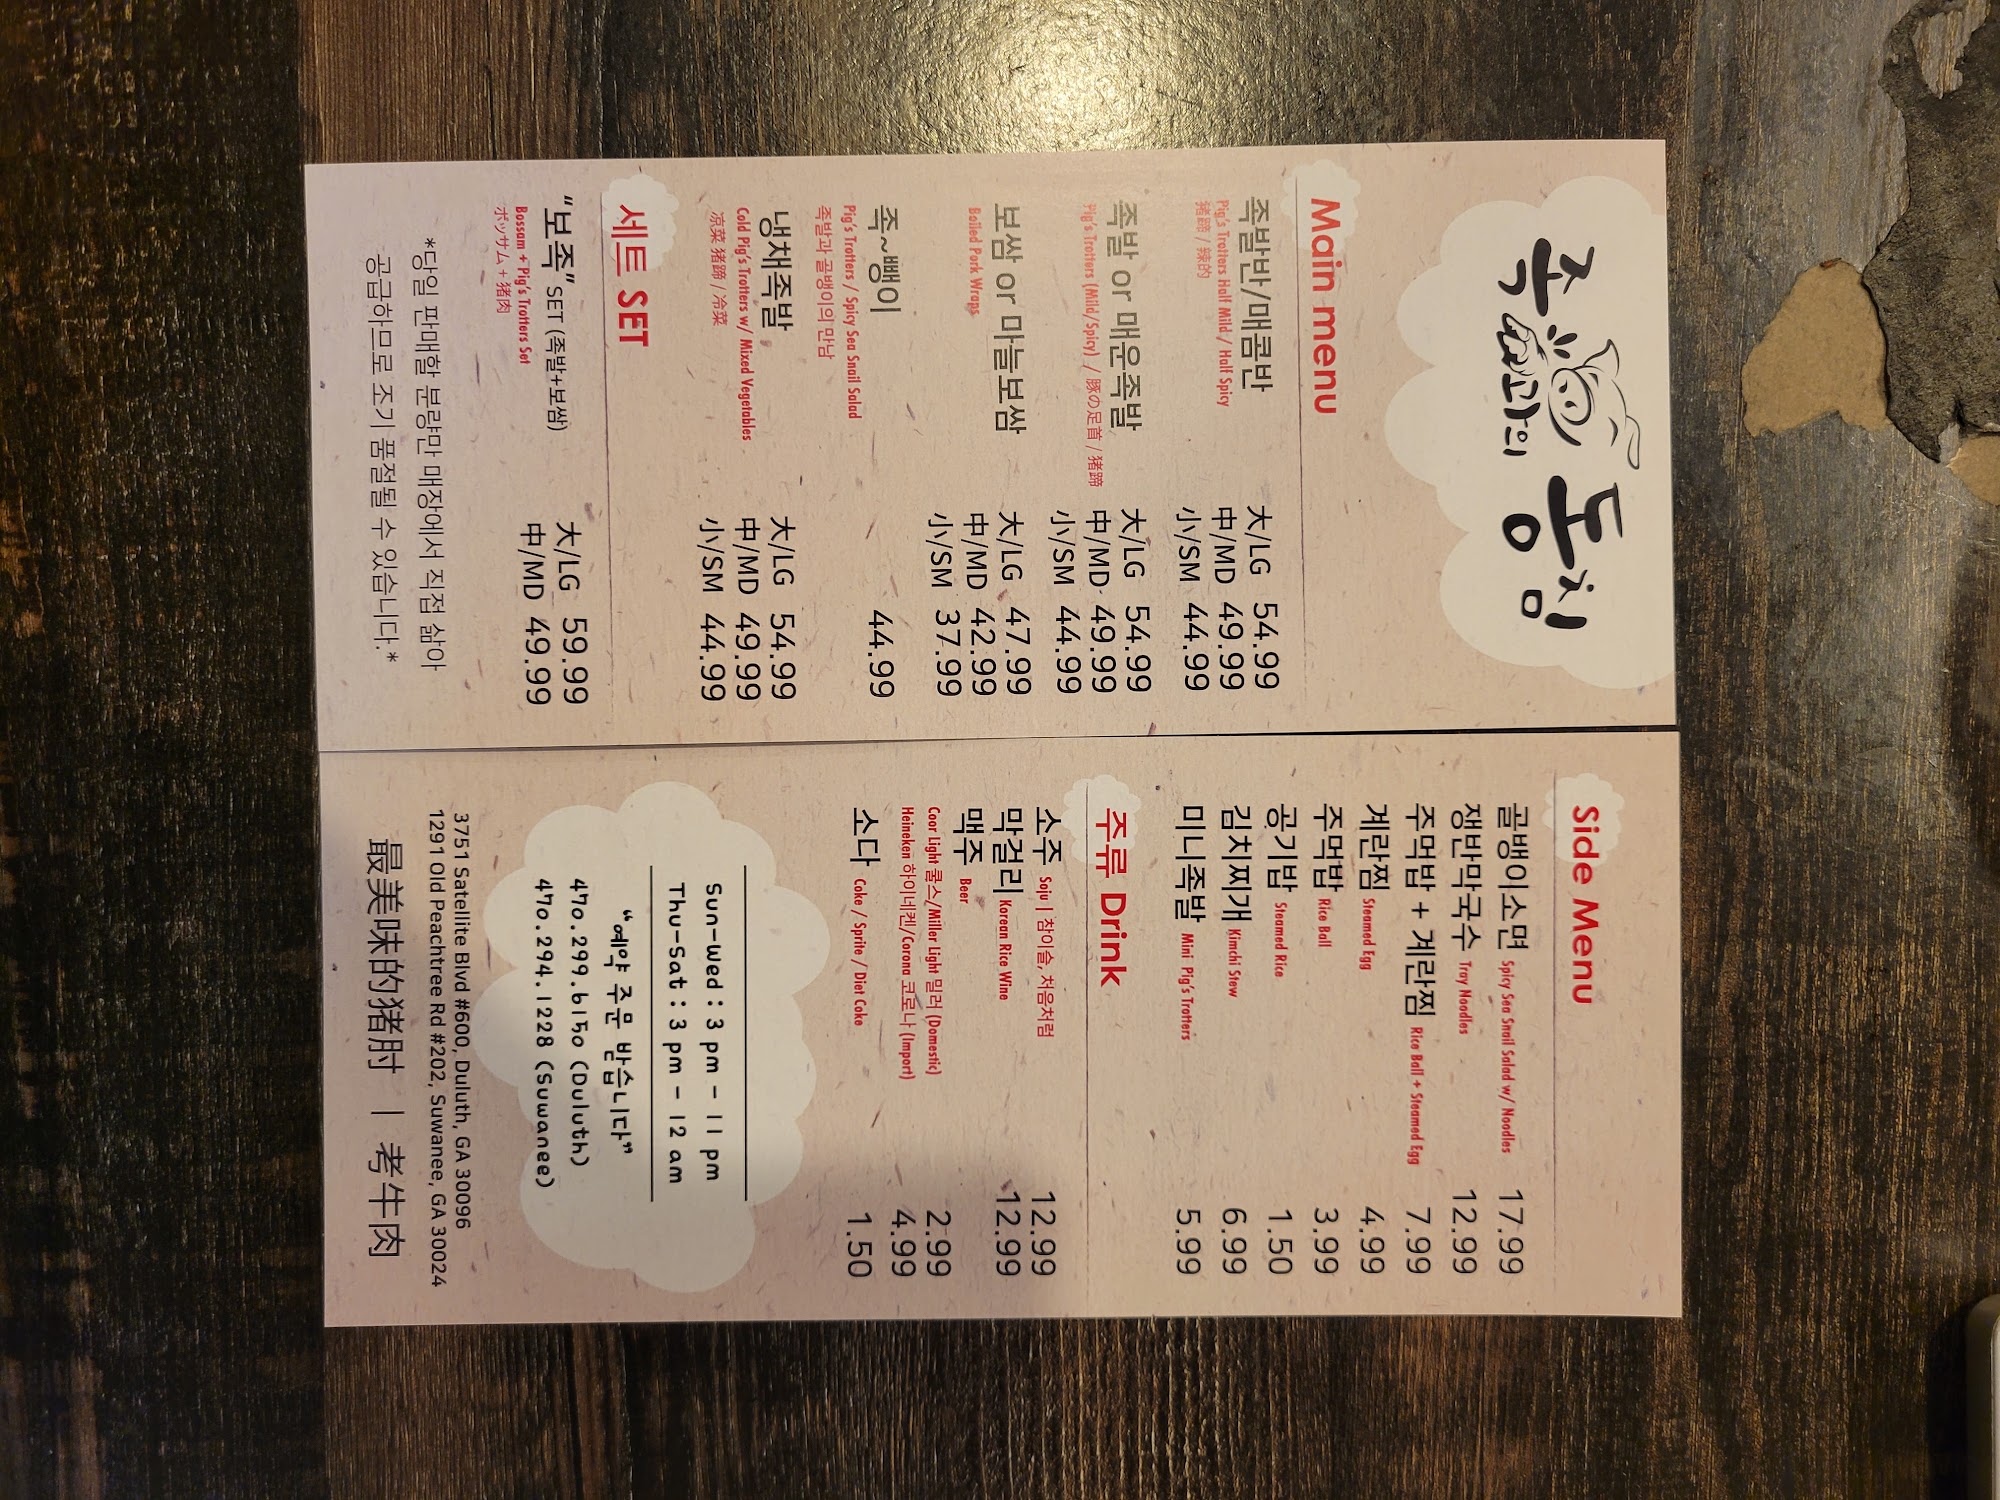 족과의 동침
Main menu
족발반/매콤반 大/LG 54.99
Pig's Trotters Half Mild / Half Spicy 中/MD 49.99
猪蹄 / 辣的 小/SM 44.99
족발 or 매운족발 大/LG 54.99
Pig's Trotters (Mild/Spicy) / 豚の足首 / 猪蹄 中/MD 49.99
小/SM 44.99
보쌈 or 마늘보쌈 大/LG 47.99
Boiled Pork Wraps 中/MD 42.99
小/SM 37.99
족~뱅이 44.99
Pig's Trotters / Spicy Sea Snail Salad
족발과 골뱅이의 만남
냉채족발 大/LG 54.99
Cold Pig's Trotters w/ Mixed Vegetables 中/MD 49.99
凉菜 猪蹄 / 冷菜 小/SM 44.99
세트 SET
"보족" SET (족발+보쌈) 大/LG 59.99
Bossam + Pig's Trotters Set 中/MD 49.99
ポッサム+猪肉
*당일 판매할 분량만 매장에서 직접 삶아
공급하므로 조기 품절될 수 있습니다.*
Side Menu
골뱅이소면 Spicy Sea Snail Salad w/ Noodles 17.99
쟁반막국수 Tray Noodles 12.99
주먹밥 + 계란찜 Rice Ball + Steamed Egg 7.99
계란찜 Steamed Egg 4.99
주먹밥 Rice Ball 3.99
공기밥 Steamed Rice 1.50
김치찌개 Kimchi Stew 6.99
미니족발 Mini Pig's Trotters 5.99
주류 Drink
소주 Soju | 참이슬, 처음처럼 12.99
막걸리 Korean Rice Wine 12.99
맥주 Beer
Coor Light 쿨스/Miller Light 밀러 (Domestic) 2.99
Heineken 하이네켄/Corona 코로나 (Import) 4.99
소다 Coke / Sprite / Diet Coke 1.50
Sun-Wed : 3 pm - 11 pm
Thu-Sat : 3 pm - 12 am
"예약 주문 받습니다"
470.299.6150 (Duluth)
470.294.1228 (Suwanee)
3751 Satellite Blvd #600, Duluth, GA 30096
1291 Old Peachtree Rd #202, Suwanee, GA 30024
最美味的猪肘 | 考牛肉